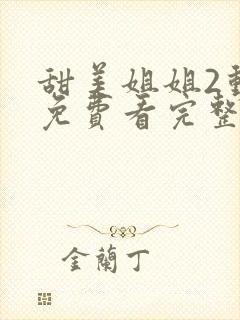 甜美姐姐2動
免費看完整
金蘭丁